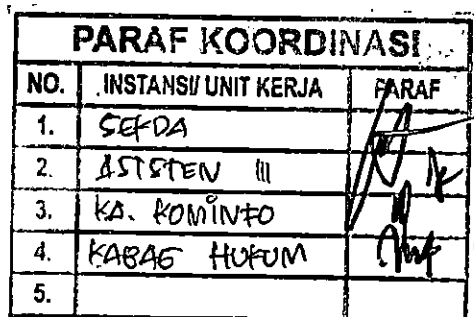 PARAF KOORDINASI
NO. INSTANSI/ UNIT KERJA PARAF
1. SEKDA
2. ASISTEN III
3. KA. KOMINFO
4. KABAG HUKUM
5.